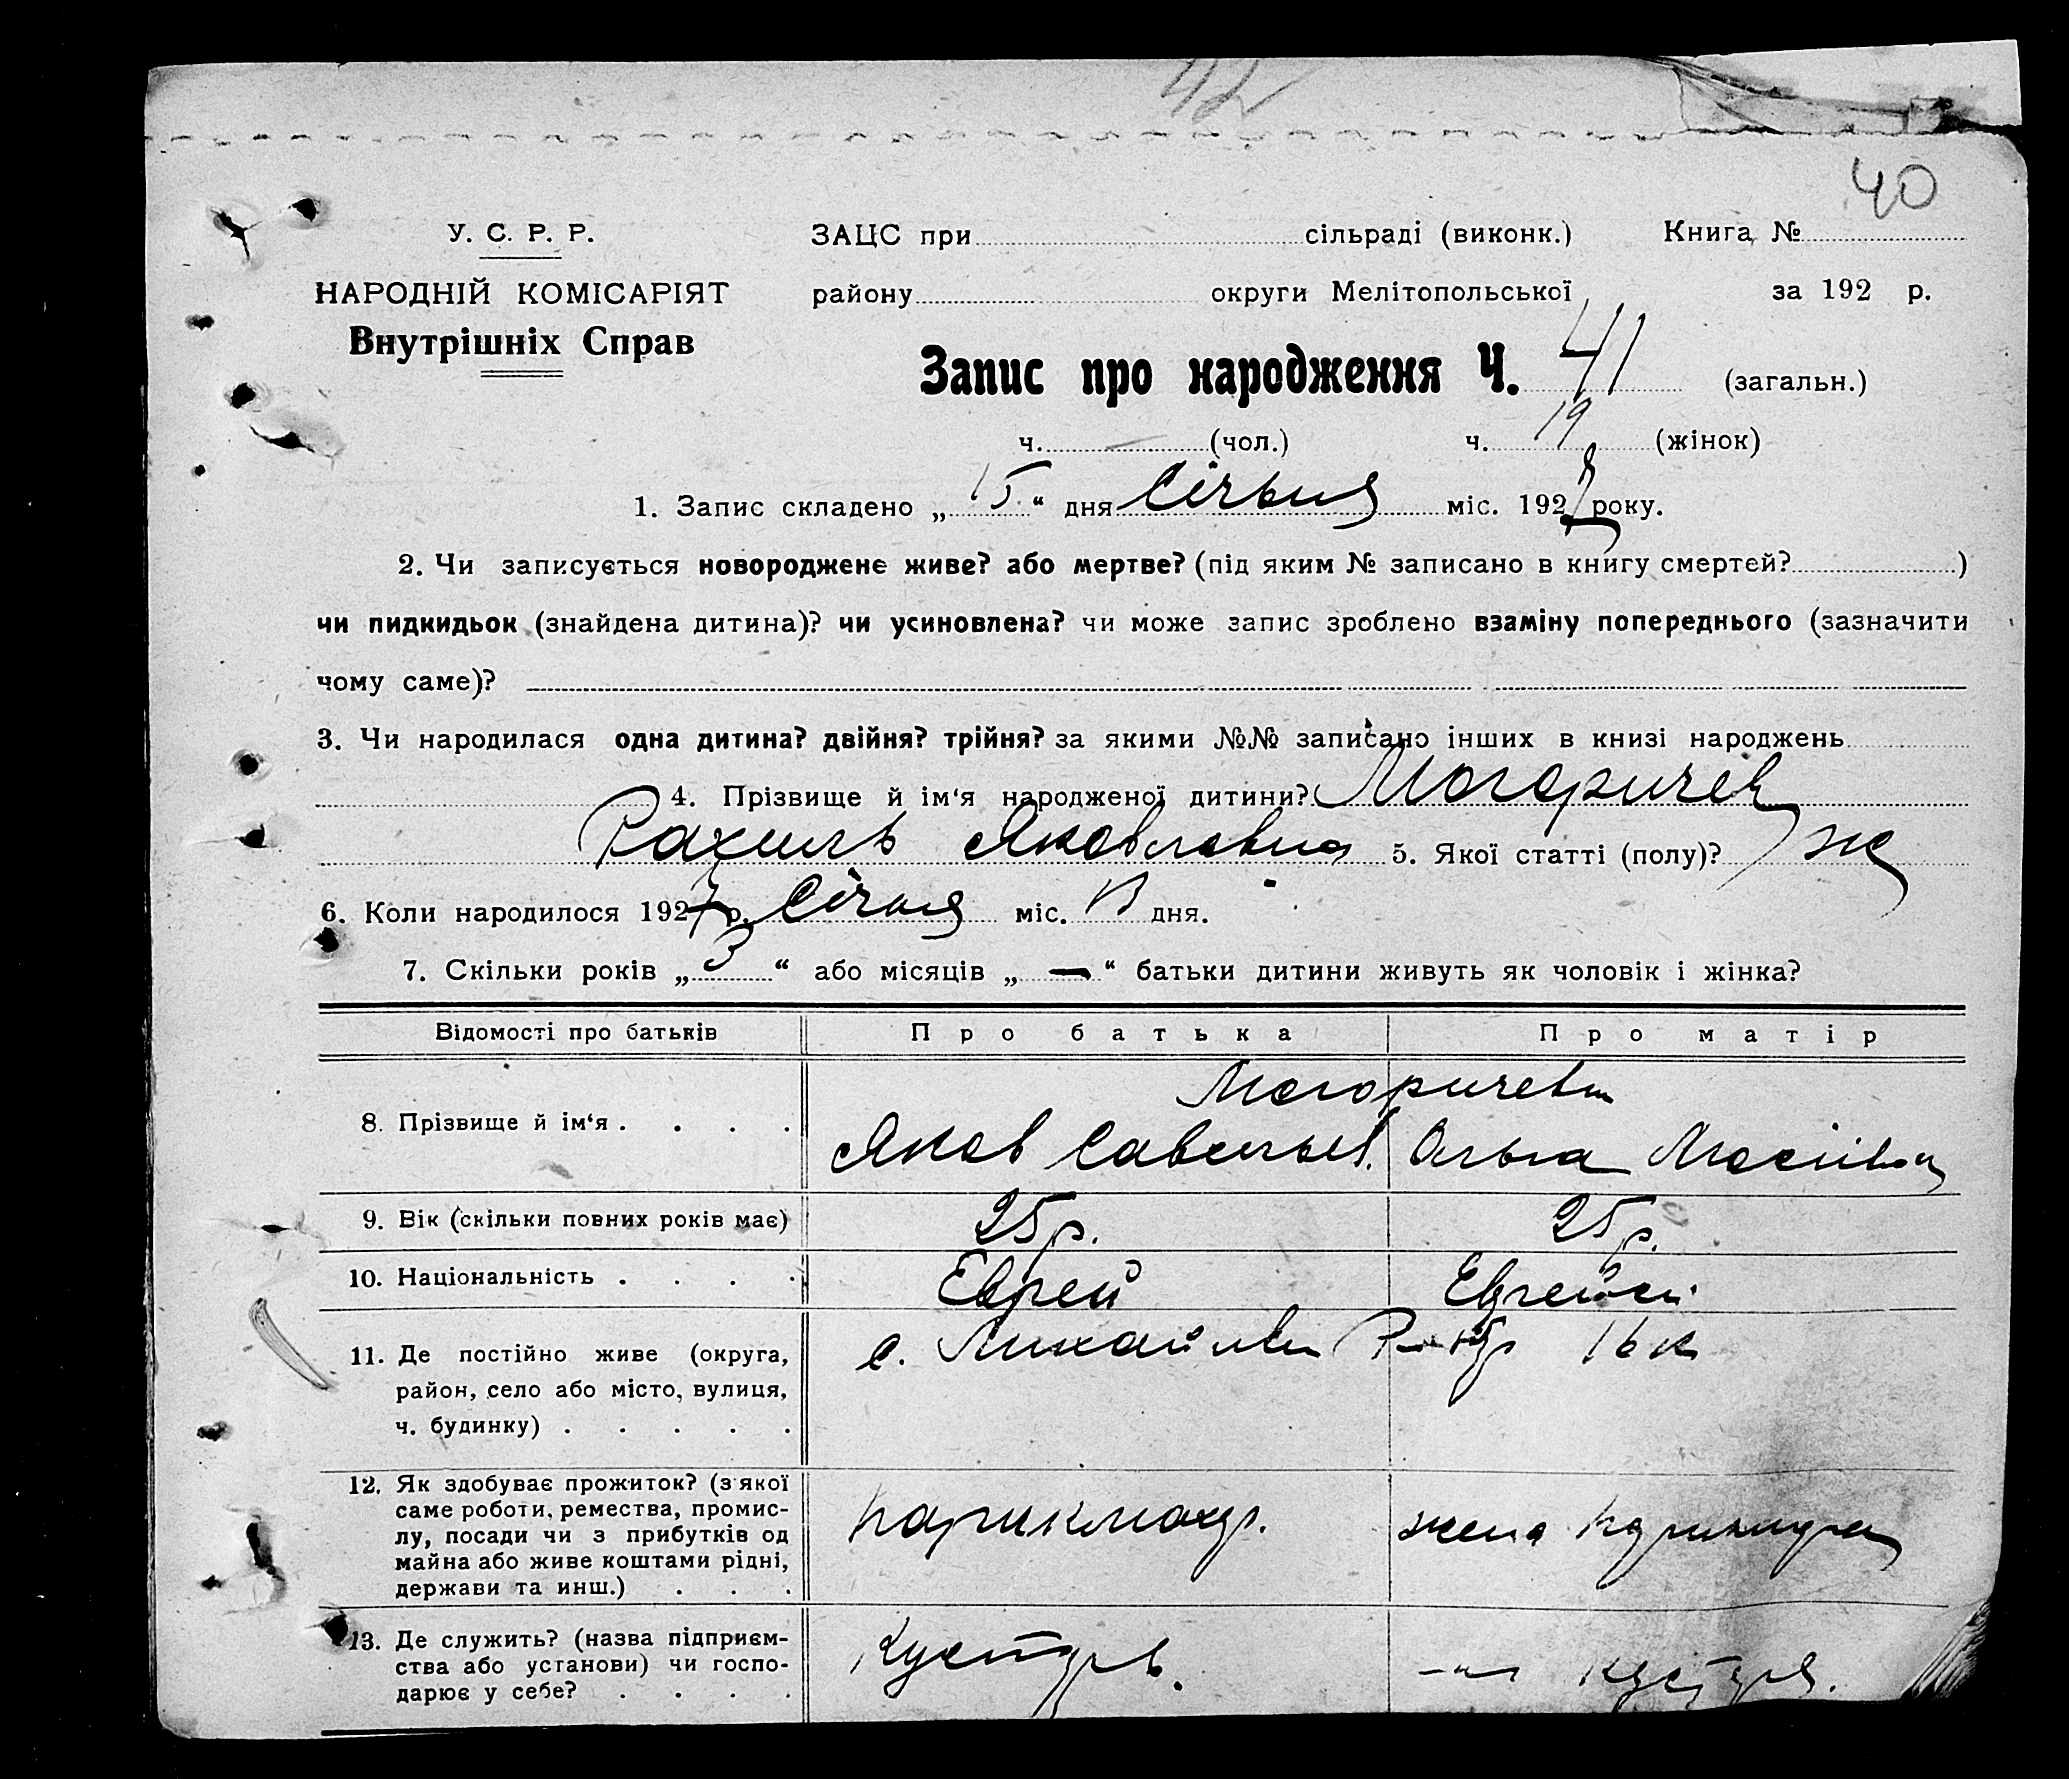 42
40
У. С. Р. Р.
ЗАЦС при сільраді (виконк.) Книга №
НАРОДНІЙ КОМІСАРІЯТ
району округи Мелітопольської за 192 р.
Внутрішніх Справ
Запис про народження Ч. 41 (загальн.)
ч. — (чол.) ч. 19 (жінок)
1. Запис складено „15“ дня Січня міс. 1927 року.
2. Чи записується новороджене живе? або мертве? (під яким № записано в книгу смертей? )
чи пидкидьок (знайдена дитина)? чи усиновлена? чи може запис зроблено взаміну попереднього (зазначити
чому саме)?
3. Чи народилася одна дитина? двійня? трійня? за якими №№ записано інших в книзі народжень
4. Прізвище й ім‘я народженої дитини? Могоричев
Рахиль Яковлевна 5. Якої статті (полу)? ж
6. Коли народилося 1927 р. Січня міс. дня.
7. Скільки років „3“ або місяців „—“ батьки дитини живуть як чоловік і жінка?
Відомості про батьків Про батька Про матір
Могоричеви
8. Прізвище й ім‘я . . . . Яков Савельев. Ольга
9. Вік (скільки повних років має) 25 р. 25 р.
10. Національність . . . . Еврей
11. Де постійно живе (округа, с. Михайлівка 16 к
район, село або місто, вулиця,
ч. будинку) . . . . .
12. Як здобуває прожиток? (з якої
саме роботи, ремества, промис-
лу, посади чи з прибутків од парикмахр. жена
майна або живе коштами рідні,
держави та инш.) . . .
13. Де служить? (назва підприєм-
ства або установи) чи госпо- Кустарь. кустаря.
дарює у себе? . . . .